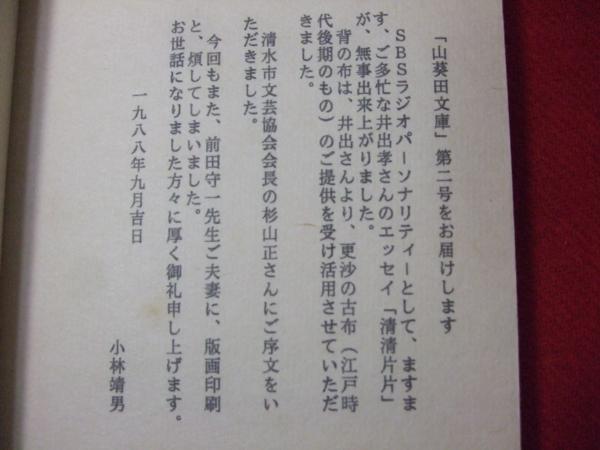 「山葵田文庫」第二号をお届けします
ＳＢＳラジオパーソナリティーとして、ますま
す、ご多忙な井出孝さんのエッセイ「清清片片」
が、無事出来上がりました。
背の布は、井出さんより、更沙の古布（江戸時
代後期のもの）のご提供を受け活用させていただ
きました。
清水市文芸協会会長の杉山正さんにご序文をい
ただきました。
今回もまた、前田守一先生ご夫妻に、版画印刷
と、煩してしまいました。
お世話になりました方々に厚く御礼申し上げます。
一九八八年九月吉日
小林靖男